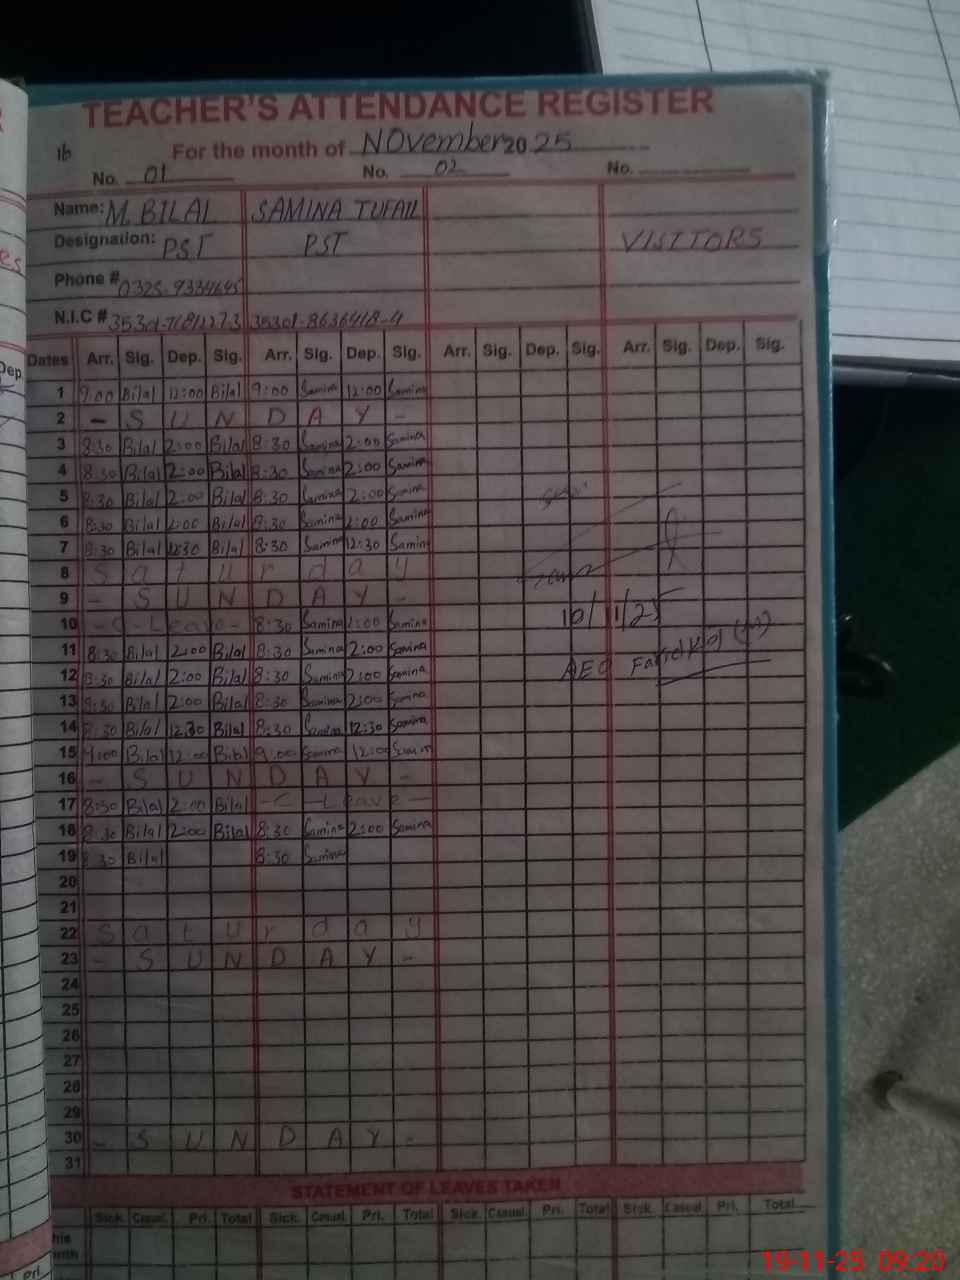 TEACHER'S ATTENDANCE REGISTER
16 For the month of November 2025
No. 01 No. 02 No.
Name: M. BILAL SAMINA TUFAIL
Designation: PST PST VISITORS
Phone # 0325-9334645
N.I.C # 35301-8636418-4
Dates Arr. Sig. Dep. Sig. Arr. Sig. Dep. Sig. Arr. Sig. Dep. Sig. Arr. Sig. Dep. Sig.
1 9:00 Bilal 12:00 Bilal 9:00 Samina 12:00 Samina
2 - S U N D A Y -
3 8:30 Bilal 2:00 Bilal 8:30 Samina 2:00 Samina
4 8:30 Bilal 2:00 Bilal 8:30 Samina 2:00 Samina
5 8:30 Bilal 2:00 Bilal 8:30 Samina 2:00 Samina
6 8:30 Bilal 2:00 Bilal 8:30 Samina 2:00 Samina
7 8:30 Bilal 12:30 Bilal 8:30 Samina 12:30 Samina
8 S a t u r d a y
9 - S U N D A Y -
10 - C - Leave - 8:30 Samina 2:00 Samina 10/11/25
11 8:30 Bilal 2:00 Bilal 8:30 Samina 2:00 Samina
12 8:30 Bilal 2:00 Bilal 8:30 Samina 2:00 Samina AEO Faridkot
13 8:30 Bilal 2:00 Bilal 8:30 Samina 2:00 Samina
14 8:30 Bilal 12:30 Bilal 8:30 Samina 12:30 Samina
15 9:00 Bilal 12:00 Bilal 9:00 Samina 12:00 Samina
16 - S U N D A Y -
17 8:30 Bilal 2:00 Bilal - C - Leave -
18 8:30 Bilal 2:00 Bilal 8:30 Samina 2:00 Samina
19 8:30 Bilal 8:30 Samina
20
21
22 S a t u r d a y
23 - S U N D A Y -
24
25
26
27
28
29
30 - S U N D A Y -
31
STATEMENT OF LEAVES TAKEN
Sick Casual Pri. Total Sick. Casual. Pri. Total Sick. Casual. Pri. Total Sick. Casual. Pri. Total
19-11-25 09:20